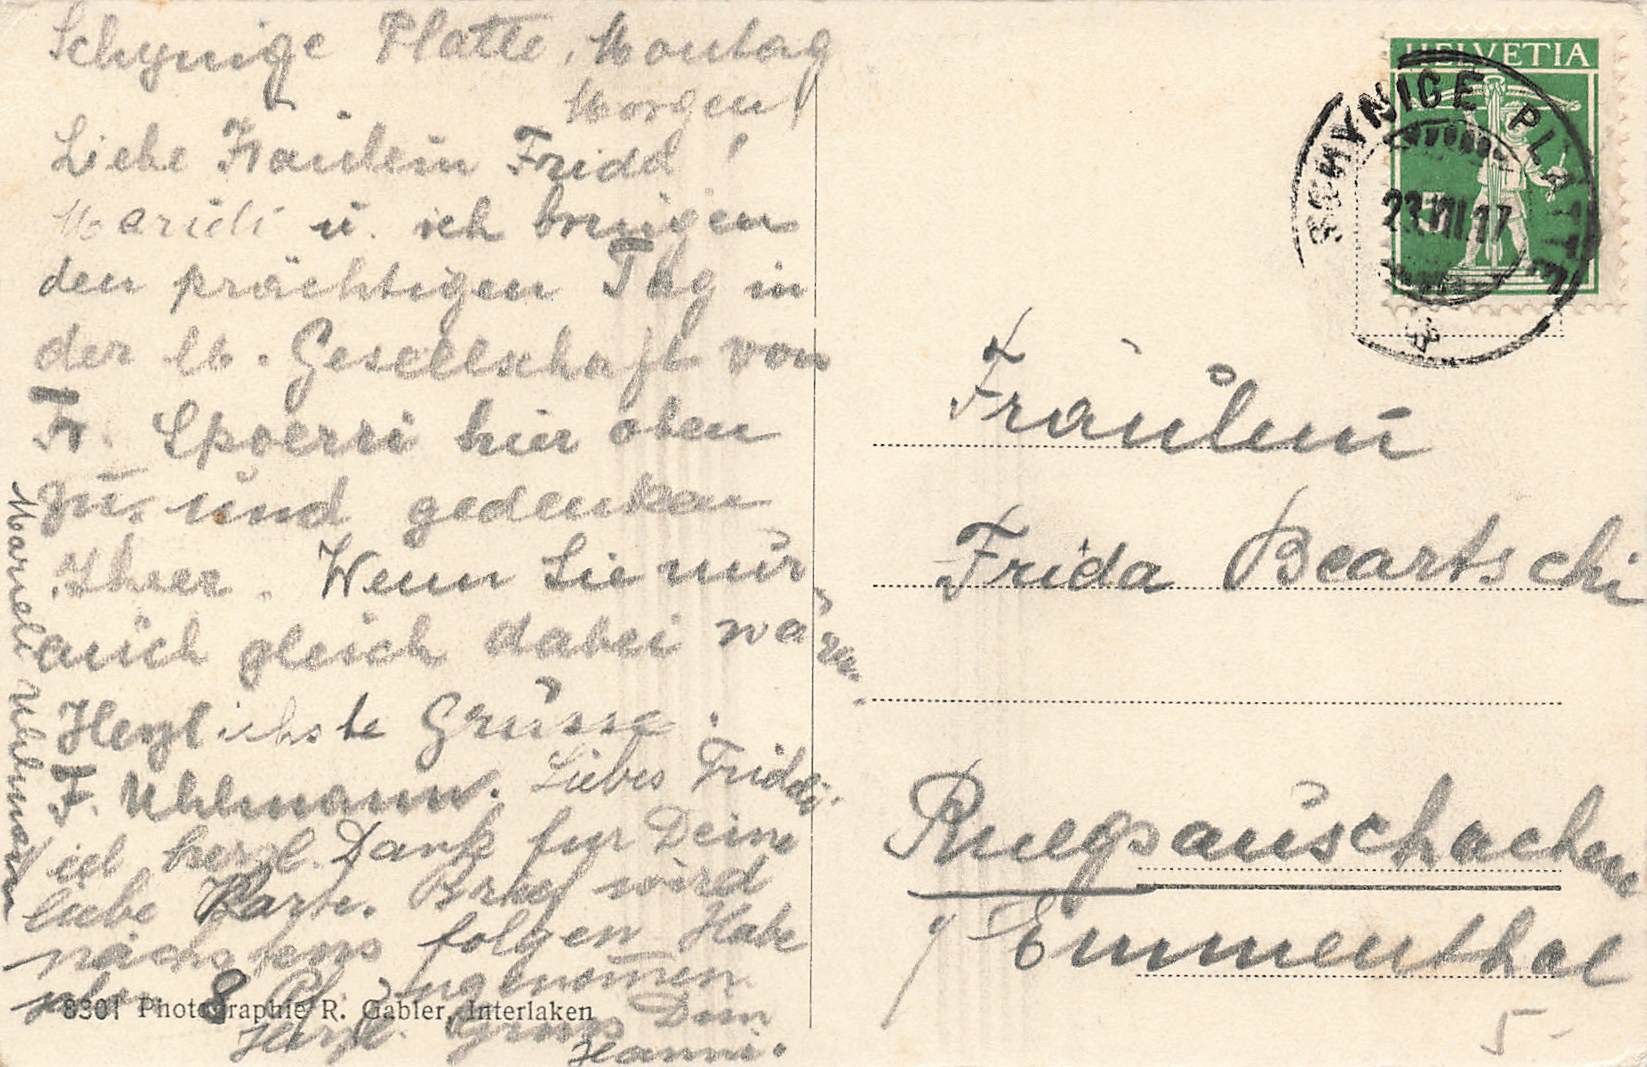 Schynige Platte, Montag
Morgen!
Liebe Fräulein Friddi!
Marieli u. ich bringen
den prächtigen Tag in
der lb. Gesellschaft von
Fr. Spoerri hier oben
zu, und gedenken
Ihrer. Wenn Sie nur
auch gleich dabei wären.
Herzlichste Grüsse.
F. Uhlmann. Liebes Friddi.
herzl. Dank für Deine
liebe Karte. Brief wird
nächstens folgen. Habe
8 zugenommen.
Herzl. Gruss Dein
Hanni.
Marieli Uhlmann
8301 Photographie R. Gabler, Interlaken
HELVETIA
5
SCHYNIGE PLATTE
23.VII.17
Fräulein
Frida Beartschi
Ruegsauschachen
Emmenthal
5-